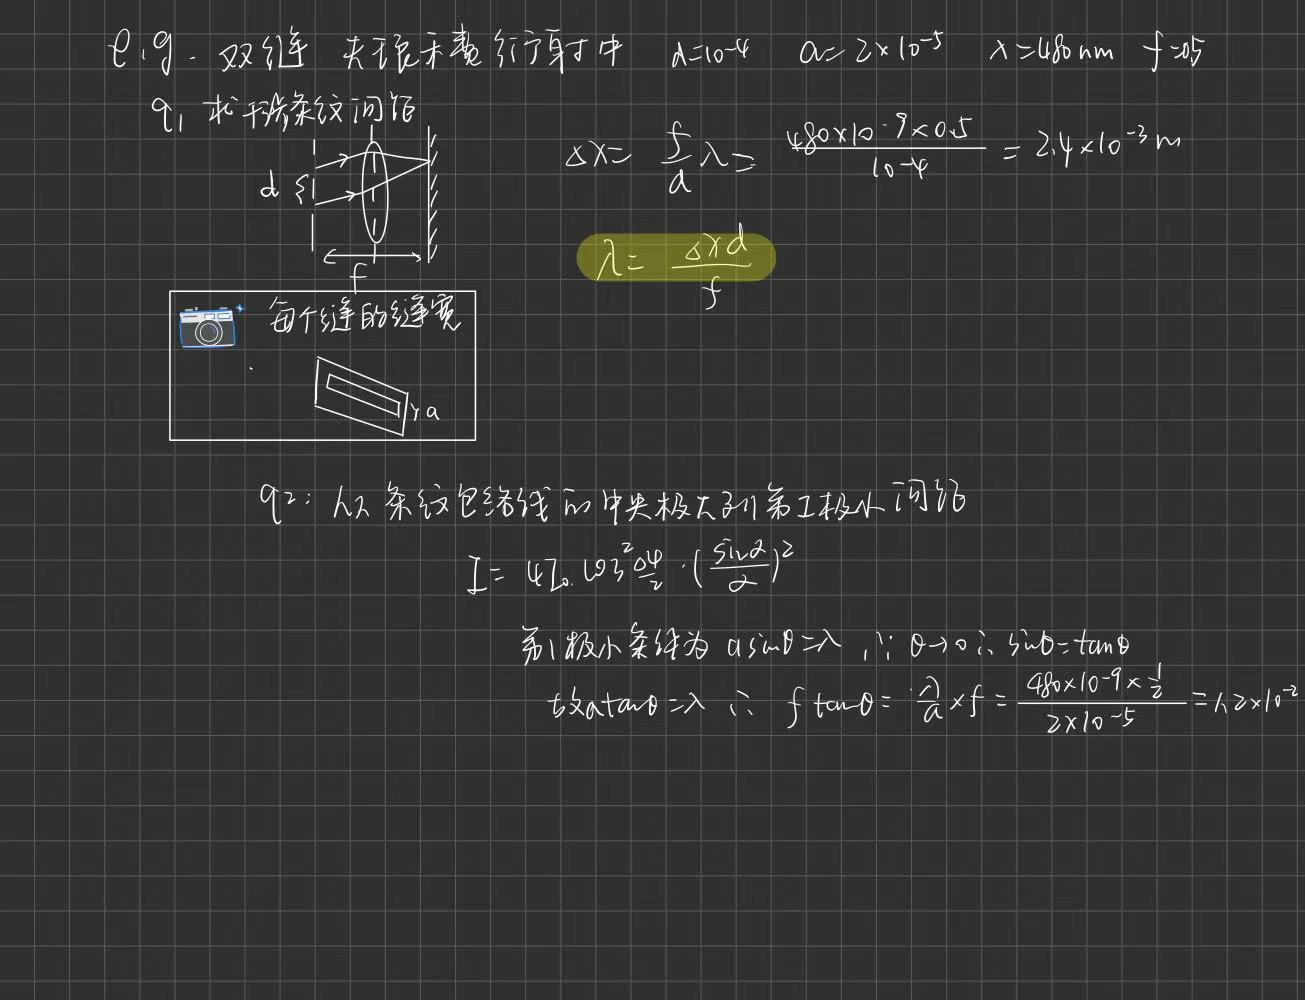 e.g. 双缝 夫琅禾费衍射中 d=10⁻⁴ a=2×10⁻⁵ λ=480nm f=0.5
q₁ 求干涉条纹间距
Δx = f/a λ = 480×10⁻⁹×0.5/10⁻⁴ = 2.4×10⁻³m
d
λ = Δxd/f
f
每个缝的缝宽
a
q2: 从条纹包络线的中央极大到第1极小间距
I = 4I₀.cos²Δφ/2 · (sinα/α)²
第1极小条件为 asinθ=λ, ∵ θ→0 ∴ sinθ=tanθ
故atanθ=λ ∴ f tanθ = λ/a × f = 480×10⁻⁹×1/2/2×10⁻⁵ = 1.2×10⁻²